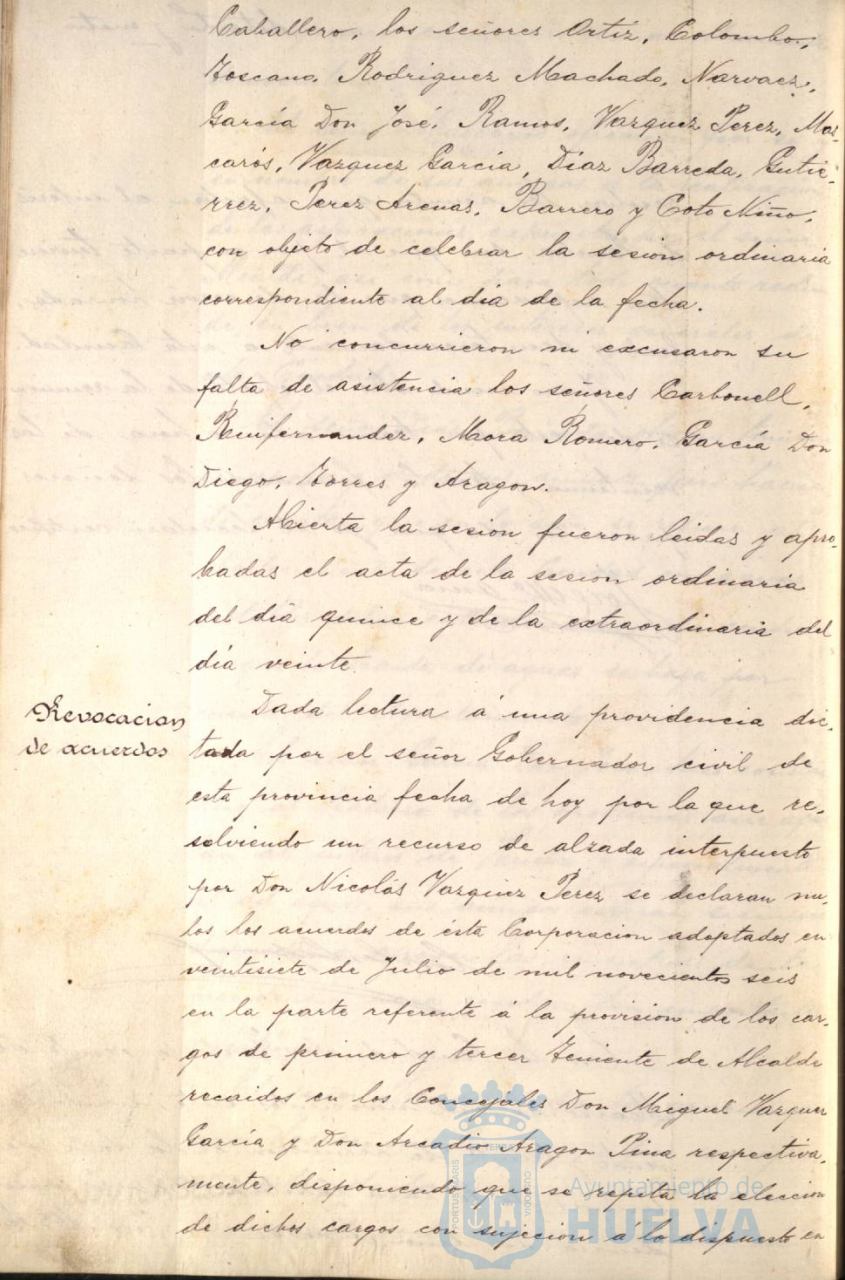 Caballero, los señores Ortiz, Colombo,
Toscano, Rodriguez Machado, Narvaez,
García Don José, Ramos, Vazquez Perez, Mas-
carós, Vazquez García, Díaz Barreda, Gutie-
rrez, Perez Arenas, Barrero y Coto Niño,
con objeto de celebrar la sesion ordinaria
correspondiente al día de la fecha.
No concurrieron ni excusaron su
falta de asistencia los señores Carbonell,
Ruifernandez, Mora Romero, García Don
Diego, Torres y Aragon.
Abierta la sesion fueron leidas y apro-
badas el acta de la sesion ordinaria
del día quince y de la extraordinaria del
día veinte
Revocacion
de acuerdos
Dada lectura á una providencia dic-
tada por el señor Gobernador civil de
esta provincia fecha de hoy por la que re-
solviendo un recurso de alzada interpuesto
por Don Nicolás Vazquez Perez se declaran nu-
los los acuerdos de ésta Corporacion adoptados en
veintisiete de Julio de mil novecientos seis
en la parte referente á la provision de los car-
gos de primero y tercer Teniente de Alcalde
recaidos en los Concejales Don Miguel Vazquez
García y Don Arcadio Aragon Pina respectiva-
mente, disponiendo que se repita la eleccion
de dichos cargos con sujecion á lo dispuesto en
Ayuntamiento de
HUELVA